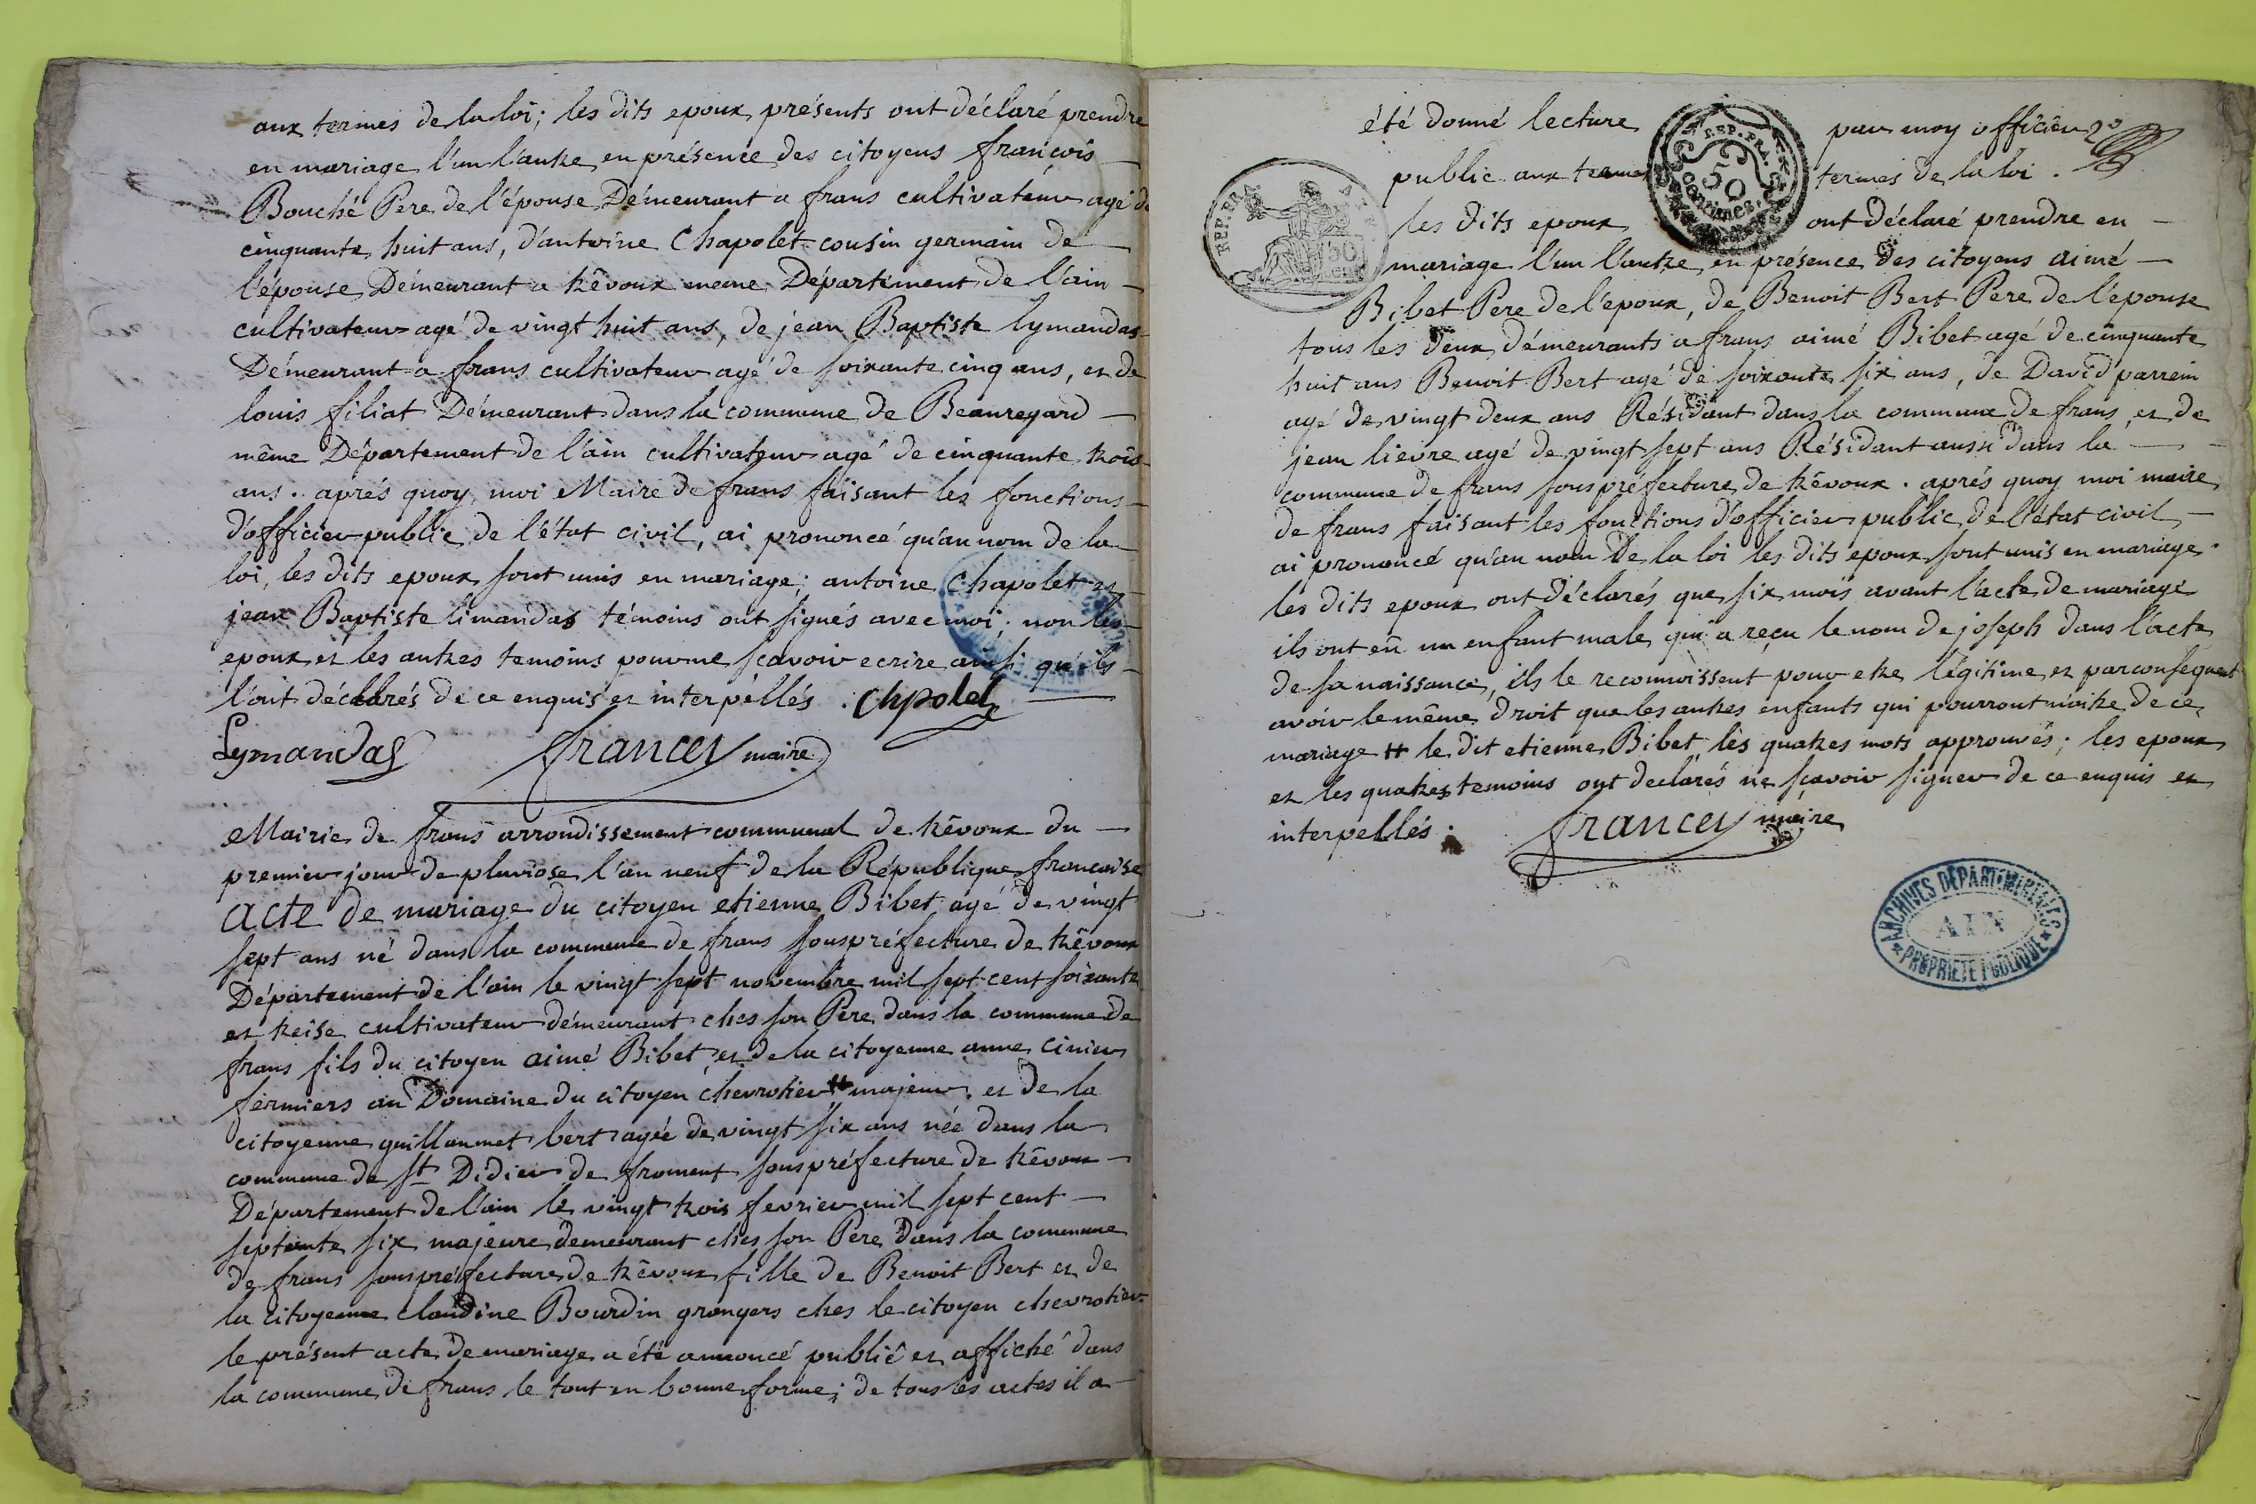 aux termes de la loi; les dits epoux présents ont déclaré prendre
en mariage l'un l'autre en présence des citoyens françois
Bouché Pere de l'épouse Démeurant a frans cultivateur agé de
cinquante huit ans, d'antoine Chapolet cousin germain de
l'épouse Démeurant a trêvoux meme Département de l'ain
cultivateur agé de vingt huit ans, de jean Baptiste lymandas
Démeurant a frans cultivateur agé de soixante cinq ans, et de
louis filiat Démeurant dans la commune de Beauregard
même Département de l'ain cultivateur agé de cinquante trois
ans. aprés quoy, moi Maire de frans faisant les fonctions
d'officier public de l'état civil, ai prononcé qu'au nom de la
loi, les dits epoux sont unis en mariage; antoine Chapolet et
jean Baptiste limandas témoins ont signés avec moi, non les
epoux et les autres temoins pour ne sçavoir ecrire ainsi qu'ils
l'ont déclarés de ce enquis et interpéllés. Chpolet
Lymandas francey maire
Mairie de frans arrondissement communal de trêvoux du
premier jour de pluviose l'an neuf de la République francaise
acte de mariage du citoyen etienne Bibet agé de vingt
sept ans né dans la commune de frans souspréfecture de trêvoux
Département de l'ain le vingt sept novembre mil sept cent soixante
et treise cultivateur démeurant ches son Pere dans la commune de
frans fils du citoyen aimé Bibet et de la citoyenne anne cinier
fermiers au Domaine du citoyen chevrotier # majeur. et de la
citoyenne guillaumet bert agée de vingt six ans née dans la
commune de St Didier de froment souspréfecture de trêvoux
Département de l'ain le vingt trois fevrier mil sept cent
septante six majeure demeurant ches son Pere dans la commune
de frans souspréfecture de trêvoux fille de Benoit Bert et de
la citoyenne claudine Bourdin grangers ches le citoyen chevrotier
le présent acte de mariage a été annoncé publié et affiché dans
la commune de frans le tout en bonne forme; de tous les actes il a
été donné lecture par moy officier
public aux terme termes de la loi.
les dits epoux ont déclaré prendre en
mariage l'un l'autre en présence des citoyens aimé
Bibet Pere de l'epoux, de Benoit Bert Pere de l'épouse
tous les deux démeurants a frans aimé Bibet agé de cinquante
huit ans Benoit Bert agé de soixante six ans, de David parrein
agé de vingt deux ans Résidant dans la commune de frans et de
jean lievre agé de vingt sept ans Résidant aussi dans la
commune de frans souspréfecture de trêvoux. aprés quoy moi maire
de frans faisant les fonctions d'officier public de l'état civil
ai prononcé qu'au nom de la loi les dits epoux sont unis en mariage.
les dits epoux ont déclarés que six mois avant l'acte de mariage
ils ont eû un enfant male qui a reçu le nom de joseph dans l'acte
de sa naissance, ils le reconnoissent pour etre légitime et parconsequent
avoir le même droit que les autres enfants qui pourront nâitre de ce
mariage # le dit etienne Bibet les quatres mots approuvés; les epoux
et les quatres temoins ont declarés ne sçavoir signer de ce enquis et
interpellés. francey maire
REP. FRA.
50
centimes.
REP. FRA
50
ARCHIVES DEPARTEMENTALES
AIN
PROPRIETE PUBLIQUE